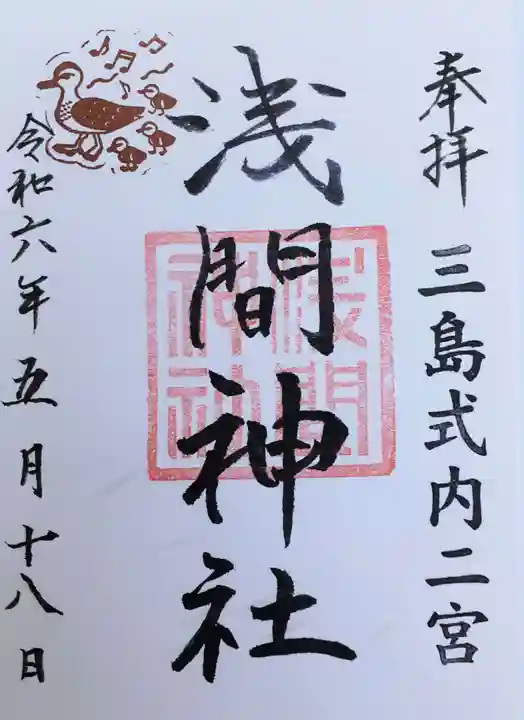 奉拝 三島式内二宮
浅間神社
浅間神社
令和六年五月十八日